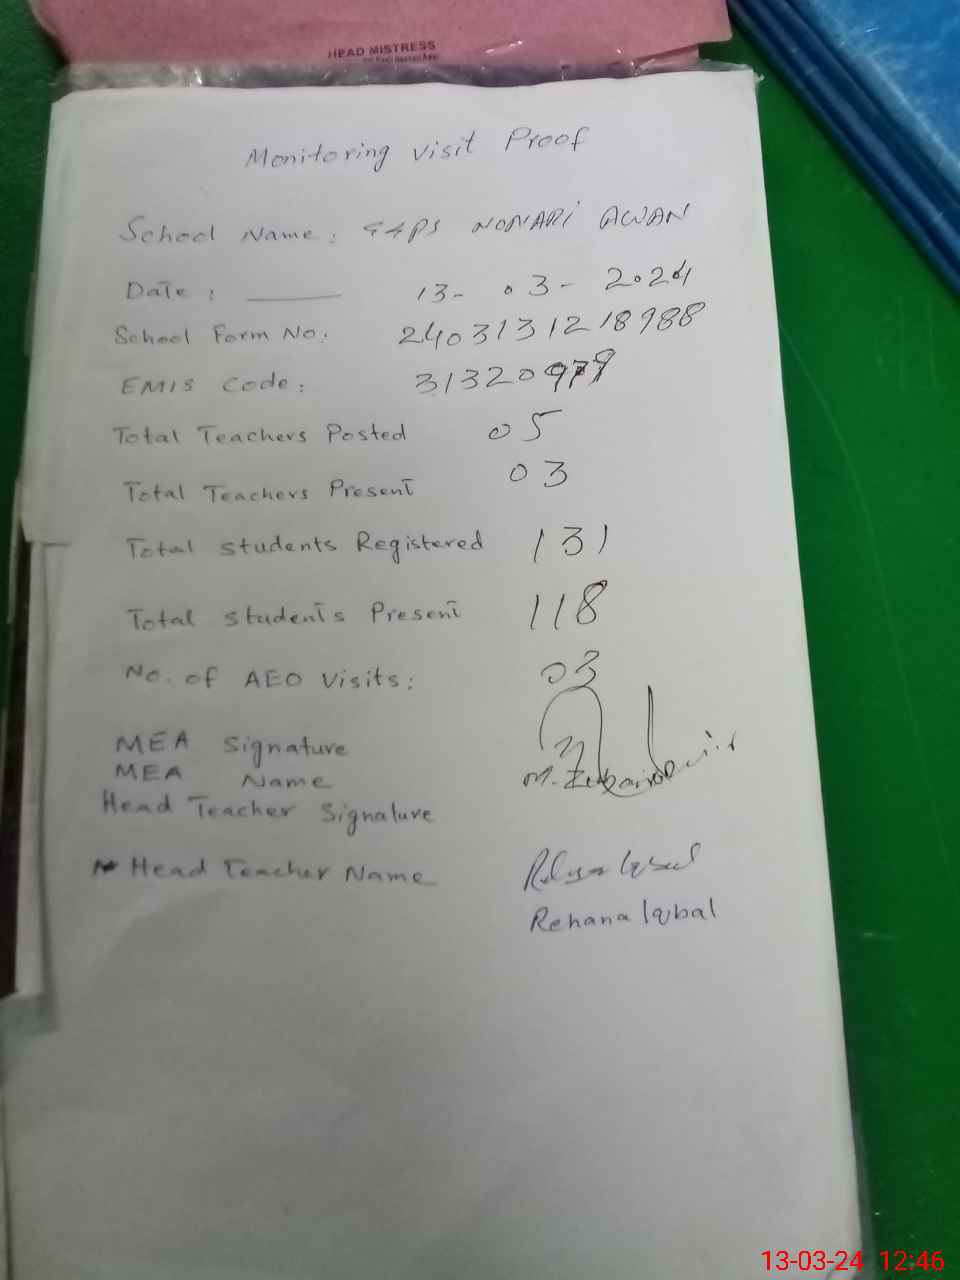 HEAD MISTRESS
Monitoring Visit Proof
School Name: GGPS NONARI AWAN
Date: 13-03-2024
School Form No: 2403131218988
EMIS Code: 31320979
Total Teachers Posted 05
Total Teachers Present 03
Total Students Registered 131
Total Students Present 118
No. of AEO Visits: 03
MEA Signature
MEA Name M. Zubair
Head Teacher Signature
Head Teacher Name
Rehana Iqbal
13-03-24 12:46